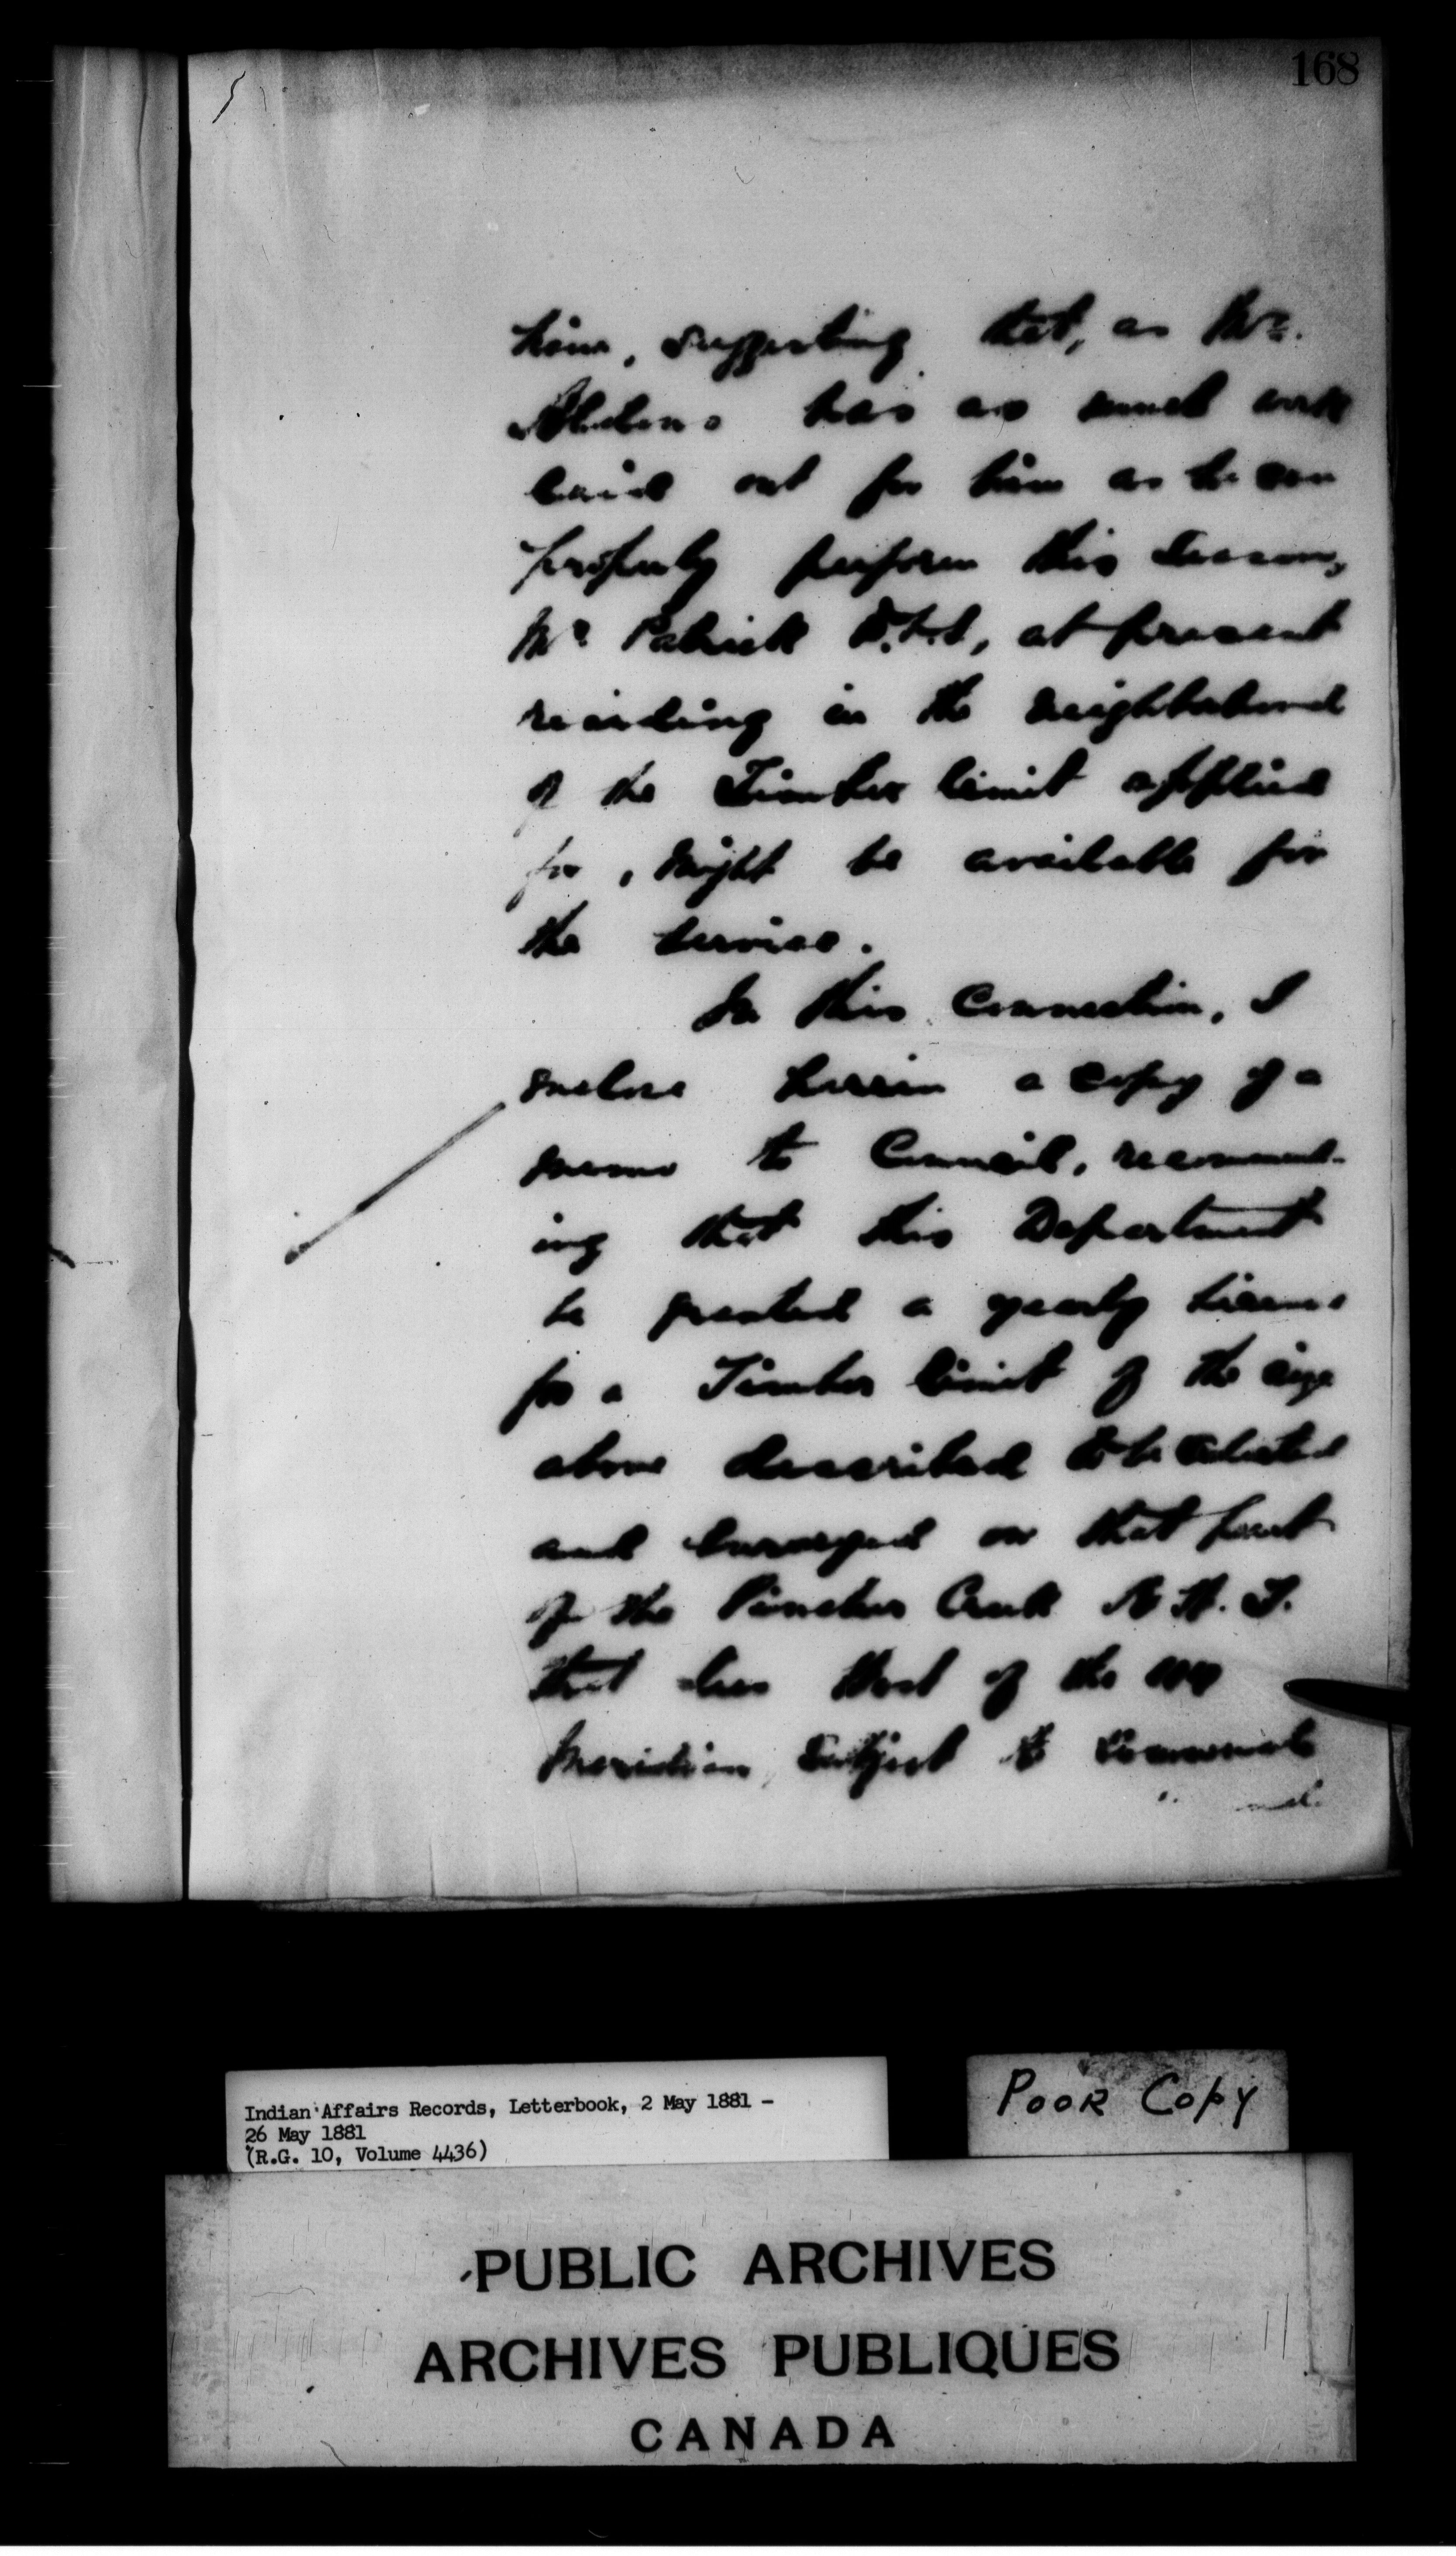 168
him, suggesting that, as Mr.
has as much work
laid out for him as he can
properly perform this season,
Mr. Patrick D.T.S, at present
residing in the neighborhood
of the Timber limit applied
for, might be available for
the service.
In this connection, I
enclose herein a copy of a
memo to Council, recommend-
ing that this Department
be granted a yearly license
for a Timber limit of the size
above described to be selected
and surveyed on that part
of the Pincher Creek N.W.T.
that lies West of the
Meridian, subject to
Indian Affairs Records, Letterbook, 2 May 1881 -
26 May 1881
(R.G. 10, Volume 4436)
Poor Copy
PUBLIC ARCHIVES
ARCHIVES PUBLIQUES
CANADA